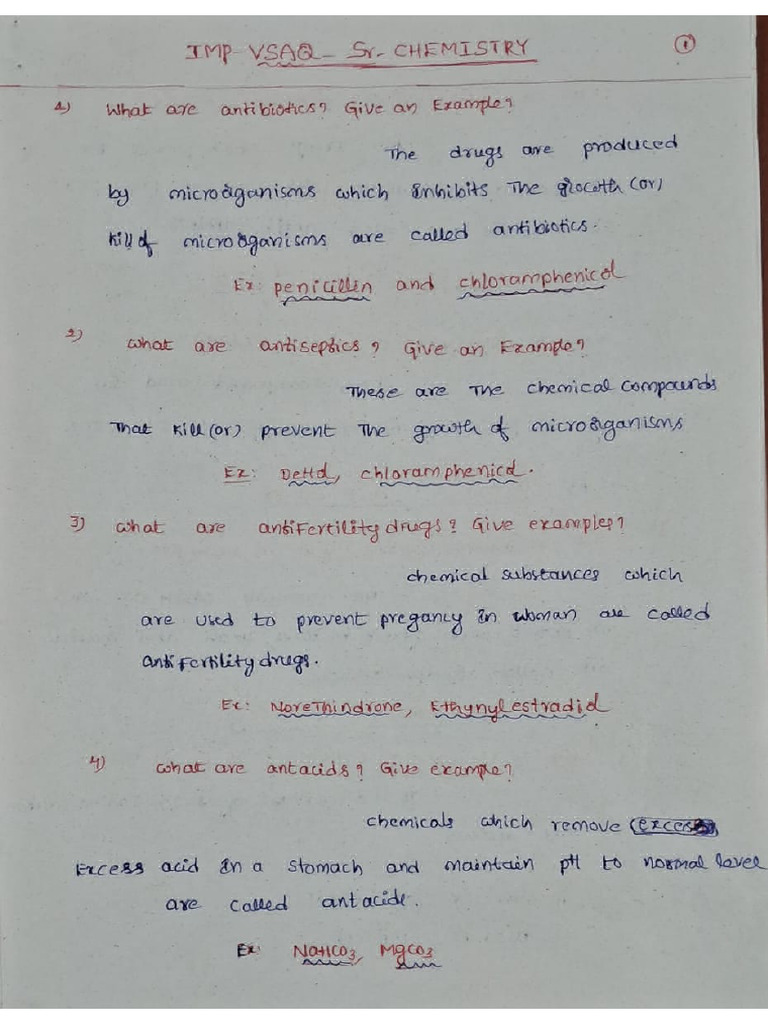 IMP-VSAQ - Sr. CHEMISTRY 1
1) What are antibiotics? Give an Example?
The drugs are produced
by microorganisms which inhibits The growth (or)
kill of microorganisms are called antibiotics.
Ex: penicillin and chloramphenicol
2) What are antiseptics? Give an Example?
These are The chemical compounds
That kill (or) prevent The growth of microorganisms
Ex: Dettol, chloramphenicol.
3) What are antifertility drugs? Give examples?
chemical substances which
are used to prevent pregancy in woman are called
antifertility drugs.
Ex: Norethindrone, Ethynylestradiol
4) What are antacids? Give example?
chemicals which remove (excess)
Excess acid in a stomach and maintain pH to normal level
are called antacids.
Ex: NaHCO3, MgCO3